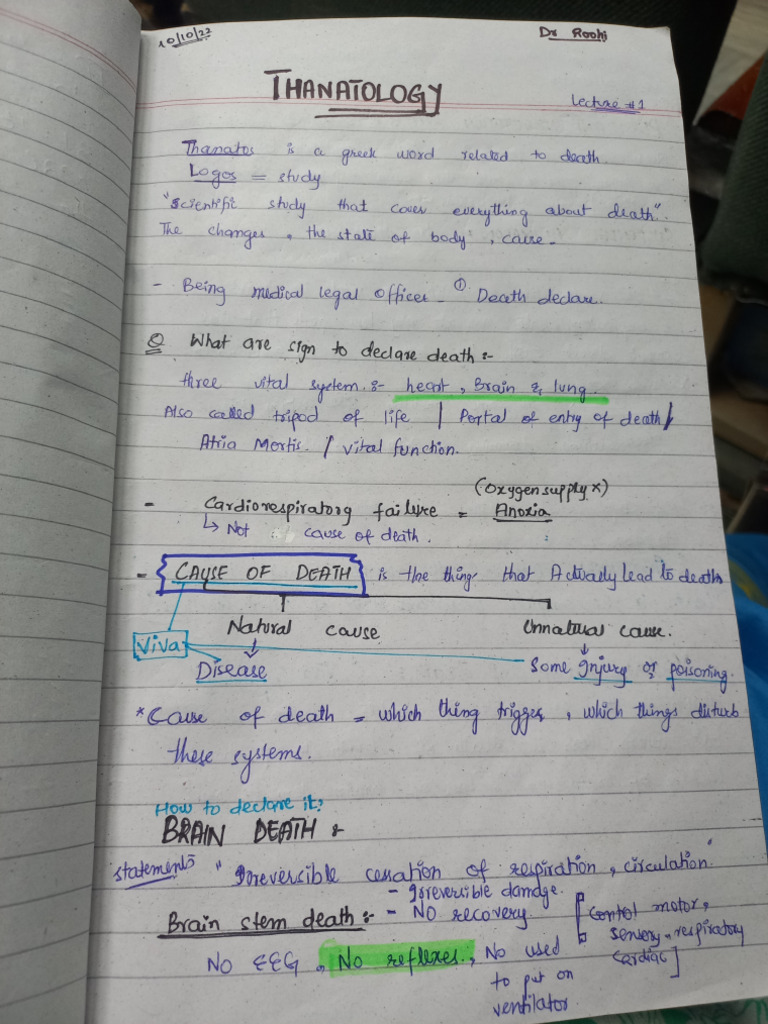 10/10/22
Dr Roohi
THANATOLOGY
Lecture #1
Thanatos is a greek word related to death.
Logos = study
"Scientific study that cover everything about death".
The changes, the state of body, cause.
- Being medical legal officer - ① Death declare.
Q What are sign to declare death :-
three vital system :- heart, Brain & lung.
Also called tripod of life / Portal of entry of death /
Atria Mortis. / vital function.
(oxygen supply x)
- Cardiorespiratory failure = Anoxia
↳ Not cause of death.
- CAUSE OF DEATH is the thing that Actually lead to death
Natural cause Unnatural cause.
Viva
Disease Some injury or poisoning.
*Cause of death = which thing trigger, which things disturb
these systems.
How to declare it?
BRAIN DEATH :-
statements "Irreversible cessation of respiration, circulation"
- Irreversible damage.
Brain stem death :- - NO recovery. [Contol motor,
sensory, respiratory
cardiac]
NO EEG, No reflexes, No used
to put on
ventilator.